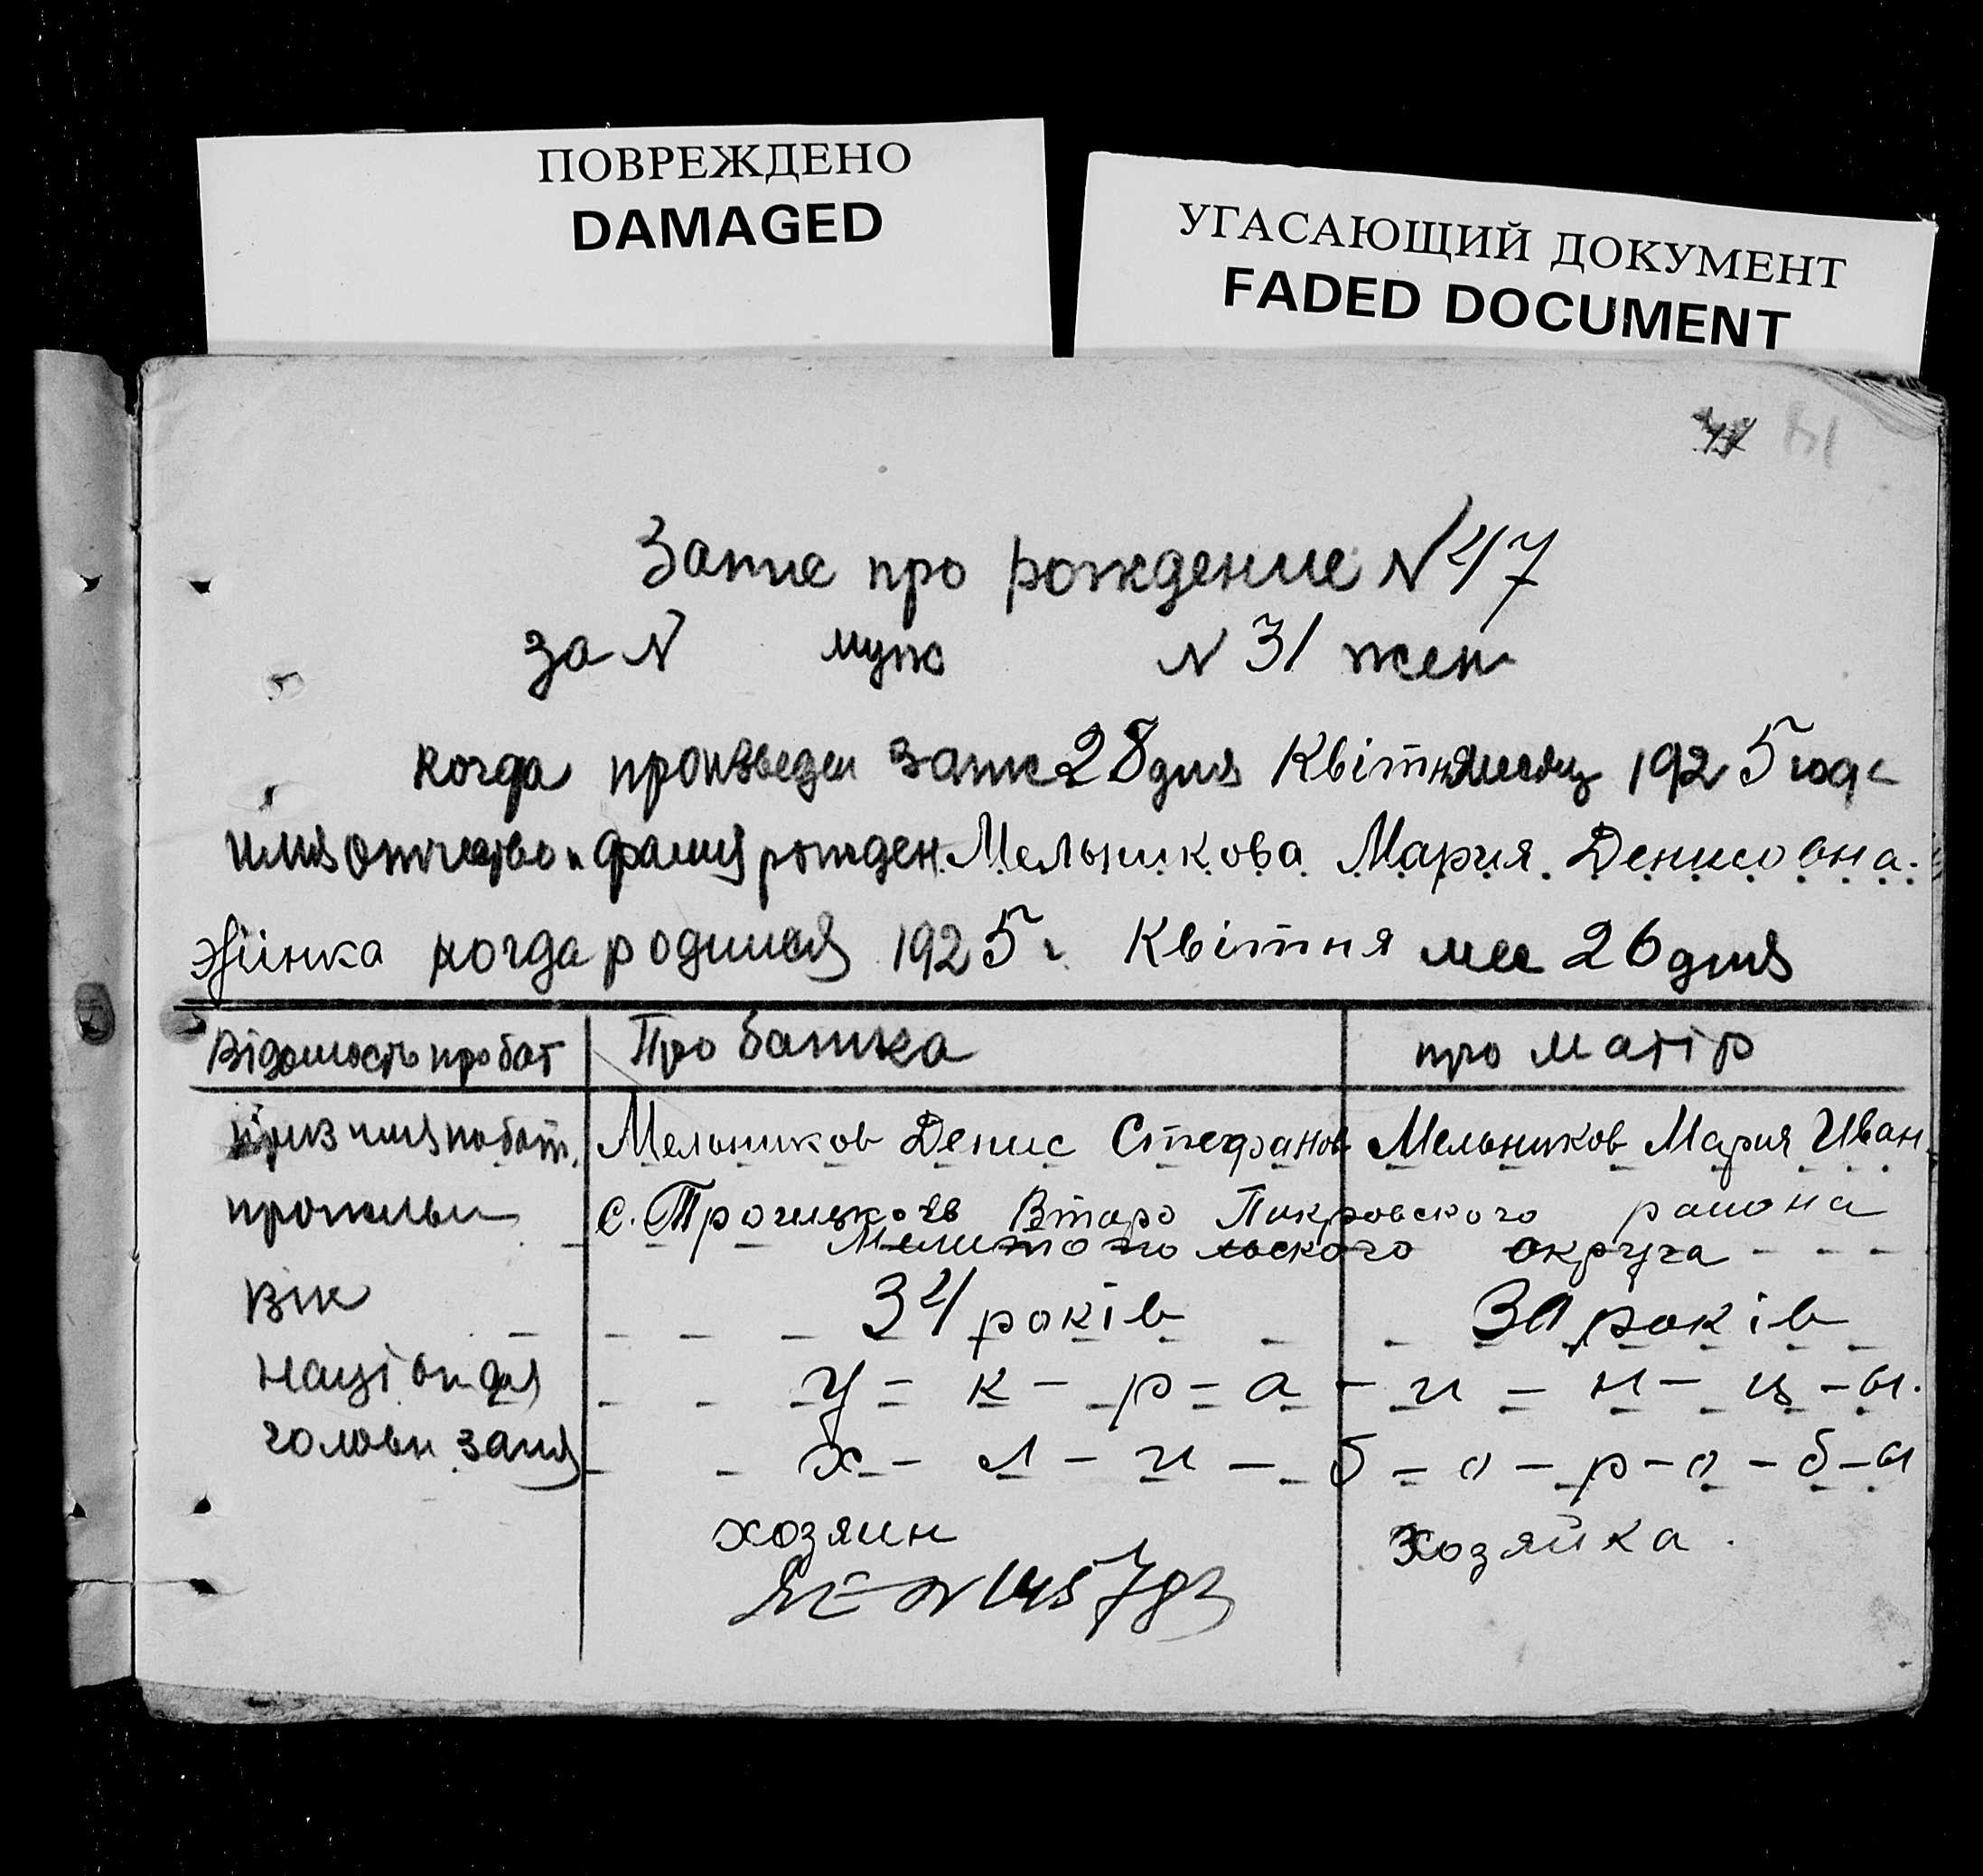 ПОВРЕЖДЕНО
DAMAGED
УГАСАЮЩИЙ ДОКУМЕНТ
FADED DOCUMENT
Запис про рождение N 47
за N муж N 31 жен
когда произведен запис 28 дня Квітня месяц 1925 год
имя отчество и фамил рожден. Мельникова Мария Денисовна.
Жінка когда родился 1925 г. Квітня мес 26 дня
Відомость про бат Про батька про матір
призв имя по бат. Мельников Денис Стефанов Мельников Мария Иван
прожив с. Втаро Покровского района
Мелитопольского округа - - -
Вік 34 років 30 років
у - к - р - а - и - н - ц - ы.
головн. заня х - л - и - б - о - р - о - б - ы
хозяин хозяйка.